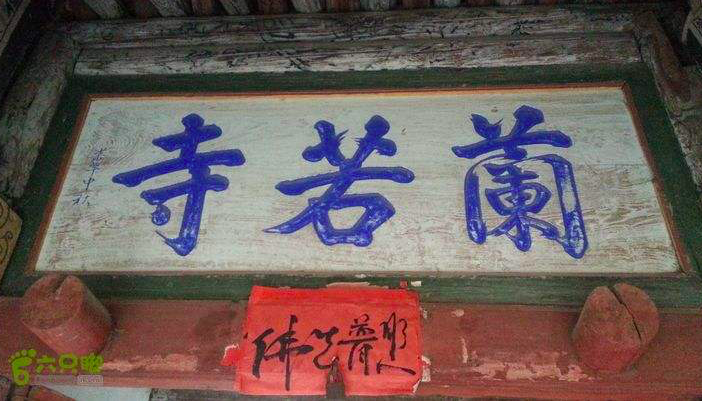 蘭若寺
佛光普照
六只脚